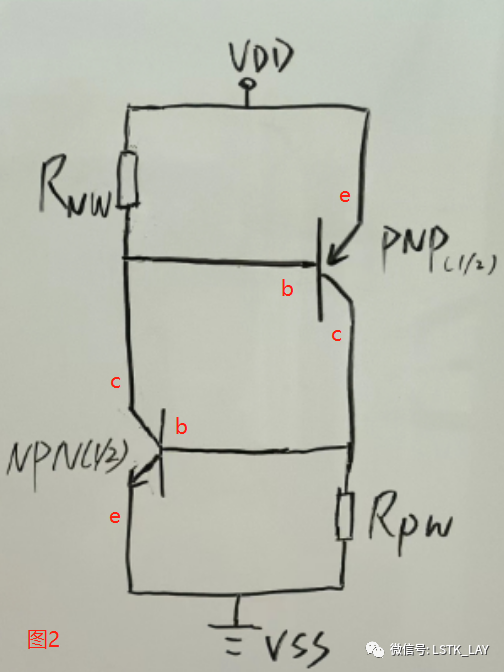 VDD
RNW
e
PNP(1/2)
b
c
c
b
NPN(1/2)
e
RPW
图2
VSS
微信号: LSTK_LAY